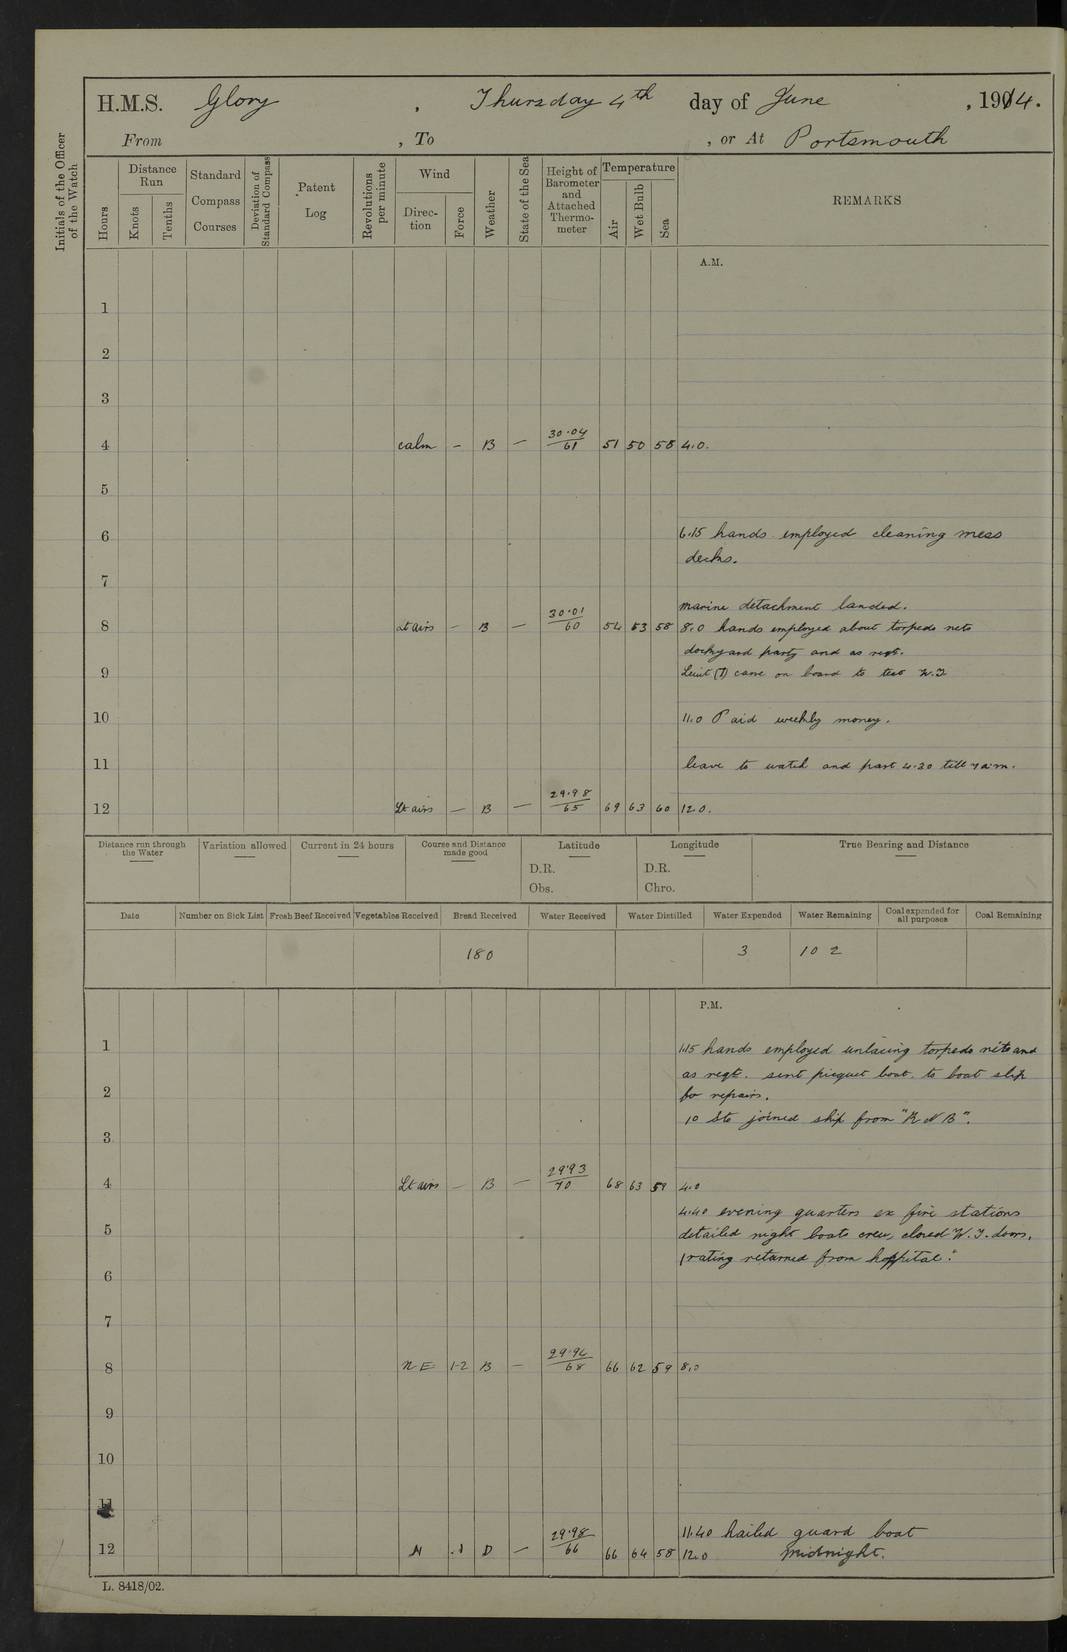 H.M.S. Glory , Thursday 4th day of June , 1914.
From , To , or At Portsmouth
Initials of the Officer of the Watch
Hours
Distance Run
Knots
Tenths
Standard Compass Courses
Deviation of Standard Compass
Patent Log
Revolutions per minute
Wind
Direction
Force
Weather
State of the Sea
Height of Barometer and Attached Thermometer
Temperature
Air
Wet Bulb
Sea
REMARKS
A.M.
1
2
3
4 calm – B – 30·04/61 51 50 58 4.0.
5
6 6.15 hands employed cleaning mess
decks.
7
marine detachment landed.
8 Lt airs – B – 30·01/60 54 53 58 8.0 hands employed about torpedo nets
dockyard party and as reqt.
9 Leiut (T) came on board to test W.T
10 11.0 Paid weekly money.
11 leave to watch and part 4.30 till 7 a.m.
12 Lt airs – B – 29·98/65 69 63 60 12.0.
Distance run through the Water
Variation allowed
Current in 24 hours
Course and Distance made good
Latitude
D.R.
Obs.
Longitude
D.R.
Chro.
True Bearing and Distance
Date
Number on Sick List
Fresh Beef Received
Vegetables Received
Bread Received
Water Received
Water Distilled
Water Expended
Water Remaining
Coal expended for all purposes
Coal Remaining
180 3 102
P.M.
1 1.15 hands employed unlacing torpedo nets and
as reqt. sent picquet boat to boat slip
2 for repairs.
10 Sto joined ship from "R N B".
3
4 Lt airs – B – 29·93/70 68 63 59 4.0
4.40 evening quarters ex fire stations
5 detailed night boats crew, closed W.T. doors.
1 rating returned from hospital.
6
7
8 NE 1-2 B – 29·96/68 66 62 59 8.0
9
10
11
11.40 hailed guard boat
12 N 1 D – 29·98/66 66 64 58 12.0 Midnight.
L. 8418/02.